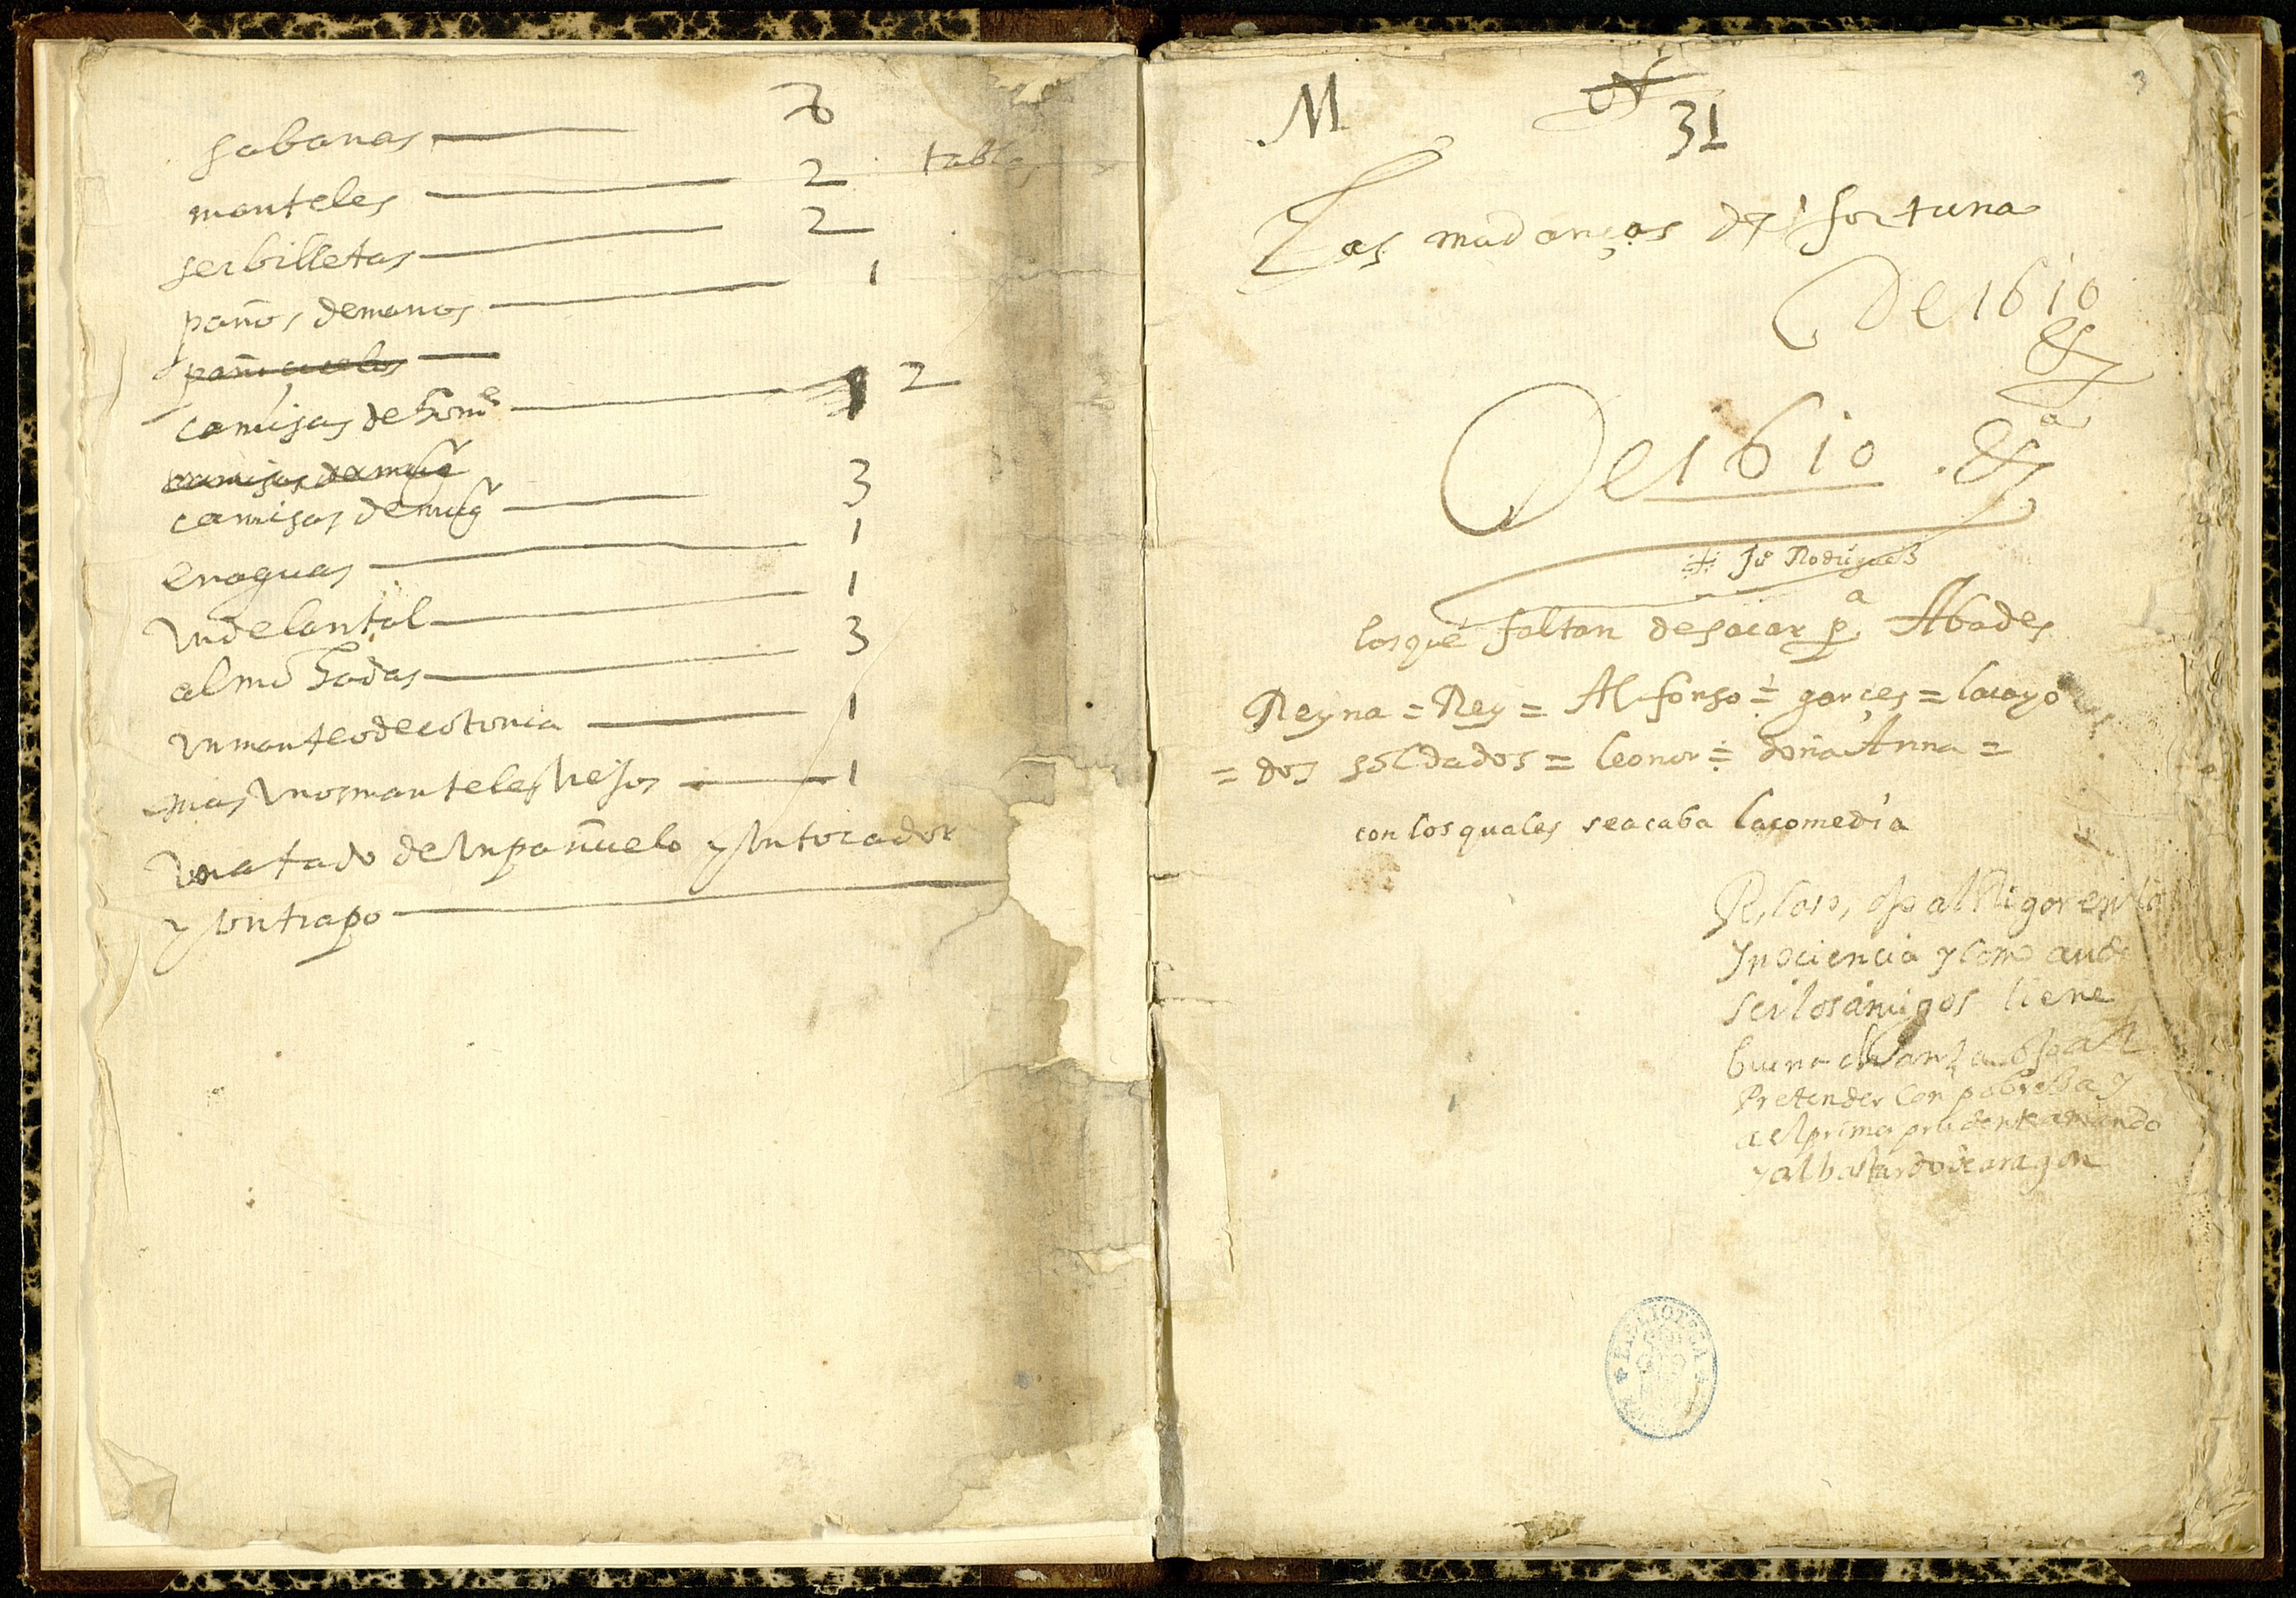 sabanas
manteles 2 tablas
serbilletas 2
paños de manos 1
pañicuelos
camisas de homᵉ 2
camisas de mugʳ
camisas de mugʳ 3
enaguas 1
un delantal 1
almohadas 3
un manteo de cotonia 1
mas unos manteles biejos 1
un atado de un pañuelo y un tocador
y un trapo
3
M
31
Las mudanças de fortuna
De 1610
De 1610
Juº Rodriguez
los que faltan de sacar pᵃ Abades
Reyna = Rey = Alfonso = garces = lacayo
= dos soldados = leonor = doña Anna =
con los quales se acaba la comedia
al Rigor en la
Ynociencia y como
ser los amigos tiene
buena
Pretender con pobressa y
a el primer prudente amando
y al bastardo de aragon
BIBLIOTECA